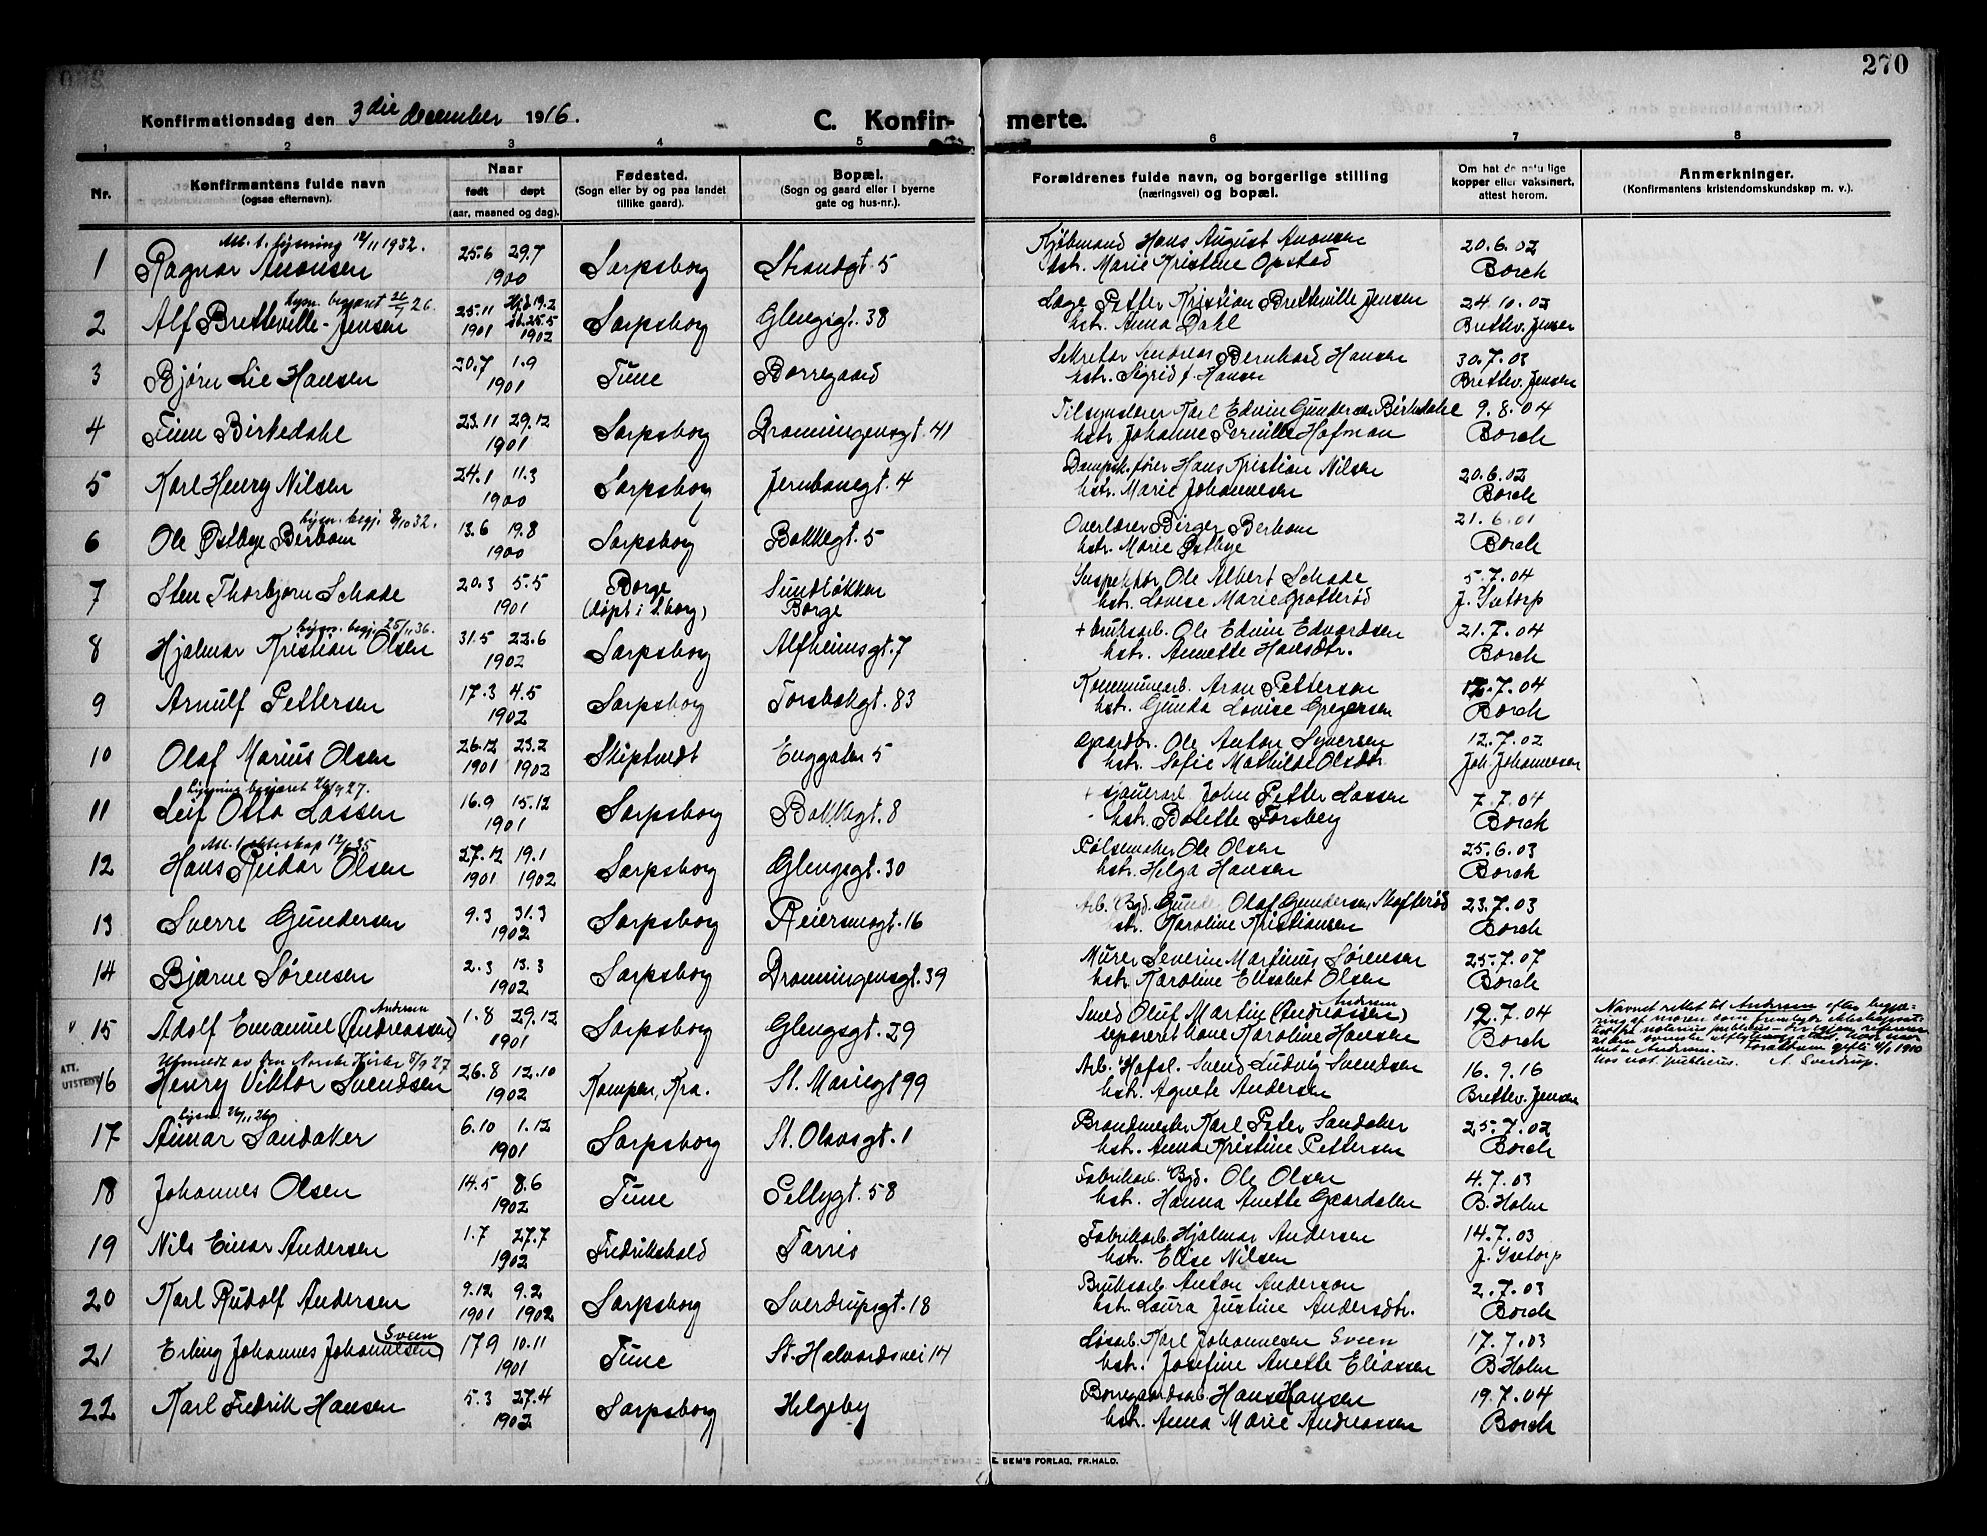 270
Konfirmationsdag den 3die december 1916.
C. Konfirmerte.
1 2 3 4 5 6 7 8
Nr.
Konfirmantens fulde navn
(ogsaa efternavn).
Naar
født døpt
(aar, maaned og dag).
Fødested.
(Sogn eller by og paa landet
tillike gaard).
Bopæl.
(Sogn og gaard eller i byerne
gate og hus-nr.).
Forældrenes fulde navn, og borgerlige stilling
(næringsvei) og bopæl.
Om hat de naturlige
kopper eller vaksinert,
attest herom.
Anmerkninger.
(Konfirmantens kristendomskundskap m. v.).
Att. t. lysning 12/11 1932.
1 Ragnar Aronsen 25.6 29.7 1900 Sarpsborg Strandgt. 5
Kjøbmand Hans August Aronsen
hstr. Marie Kristine Opstad
20.6.02 Borch
lysn. begjæret 26/7 26.
2 Alf Bretteville-Jensen 25.11 1901 Hjd. 19.2 St. 25.5 1902 Sarpsborg Glengsgt. 38
Læge Petter Kristian Bretteville Jensen
hstr. Anna Dahl
24.10.02 Brettev. Jensen
3 Bjørn Lie Hansen 20.7 1.9 1901 Tune Borregaard
Sekretær Andreas Bernhard Hansen
hstr. Sigrid f. Hansen
30.7.03 Brettev. Jensen
4 Finn Birkedahl 23.11 29.12 1901 Sarpsborg Dronningensgt. 41
Tilsynslærer Karl Edvin Gundersen Birkedahl
hstr. Johanne Pernille Hofman
9.8.04 Borch
5 Karl Henry Nilsen 24.1 11.3 1900 Sarpsborg Jernbanegt. 4
Dampsk.fører Hans Kristian Nilsen
hstr. Marie Johannesen
20.6.02 Borch
lysn. begj. 8/10 32.
6 Ole Østbye Berbom 13.6 19.8 1900 Sarpsborg Bakkegt. 5
Overlærer Birger Berbom
hstr. Marie Østbye
21.6.01 Borch
7 Sten Thorbjørn Schade 20.3 5.5 1901 Borge (døpt i S.borg) Sundløkken Borge
Inspektør Ole Albert Schade
hstr. Lovise Marie Grotterød
5.7.04 J. Istorp
lysn. begj. 25/11 36.
8 Hjalmar Kristian Olsen 31.5 22.6 1902 Sarpsborg Alfheimsgt. 7
+ bruksarb. Ole Edvin Edvardsen
hstr. Annette Hansdtr.
21.7.04 Borch
9 Arnulf Pettersen 17.3 4.5 1902 Sarpsborg Torsbækgt. 83
Kommunearb. Aron Petterson
hstr. Gunda Lovise Gregersen
12.7.04 Borch
10 Olaf Marius Olsen 26.12 1901 23.2 1902 Skiptvedt Enggaten 5
Gaardbr. Ole Anton Syversen
hstr. Sofie Mathilde Olsdtr.
12.7.02 Joh. Johannesen
lysning begjæret 26/9 27.
11 Leif Otto Lassen 16.9 15.12 1901 Sarpsborg Bakkegt. 8
+ John Petter Lassen
hstr. Bolette Forsberg
7.7.04 Borch
Att. t. ekteskap 12/6 35
12 Hans Reidar Olsen 27.12 1901 19.1 1902 Sarpsborg Glengsgt. 30
Pølsemaker Ole Olsen
hstr. Helga Hansen
25.6.03 Borch
13 Sverre Gundersen 9.3 31.3 1902 Sarpsborg Reiersensgt. 16
Arb. Olaf Gundersen Skofterød
hstr. Karoline Kristiansen
23.7.03 Borch
14 Bjarne Sørensen 2.3 13.3 1902 Sarpsborg Dronningensgt. 39
Murer Severin Martinus Sørensen
hstr. Karoline Elisabet Olsen
25.7.07 Borch
Andreen
15 Adolf Emanuel (Andreassen) 1.8 29.12 1901 Sarpsborg Glengsgt. 29
Andreen
Smed Oluf Martin (Andreassen)
separeret kone Karoline Hansen
12.7.04 Borch
Navnet rettet til Andreen efter begjæring af moren som
A. Sverdrup.
ATT. UTSTEDT
Utmeldt av Den Norske Kirke 8/9 27
16 Henry Viktor Svendsen 26.8 12.10 1902 Kampen, Kra. St. Mariegt 99
Arb. Hafsl. Svend Ludvig Svendsen
hstr. Agnete Andersen
16.9.16 Brettev. Jensen
lysn. 26/11 26
17 Aimar Sandaker 6.10 1.12 1901 Sarpsborg St. Olavsgt. 1
Brandmester Karl Peter Sandaker
hstr. Anna Kristine Pettersen
25.7.02 Borch
18 Johannes Olsen 14.5 8.6 1902 Tune Pellygt. 58
Fabrikarb. Bgd. Ole Olsen
hstr. Hanna Anette Gaardalen
4.7.03 B. Holm
19 Nils Einar Andersen 1.7 27.7 1902 Fredrikshald Tarris
Fabrikarb. Hjalmar Andersen
hstr. Elise Nilsen
14.7.03 J. Istorp
20 Karl Rudolf Andersen 9.12 1901 9.2 1902 Sarpsborg Sverdrupsgt. 18
Bruksarb. Anton Anderson
hstr. Laura Justine Andersdtr.
2.7.03 Borch
Sveen
21 Erling Johannes Johannesen 17 9 10.11 1901 Tune St. Halvardsvei 14
Løsarb. Karl Johannesen Sveen
hstr. Josefine Anette Eliassen
17.7.03 B. Holm
22 Karl Fredrik Hansen 5.3 27.4 1902 Sarpsborg Helgeby
Borregaardsarb. Hans Hansen
hstr. Anna Marie Andreassen
19.7.04 Borch
E. SEM'S FORLAG, FR.HALD.